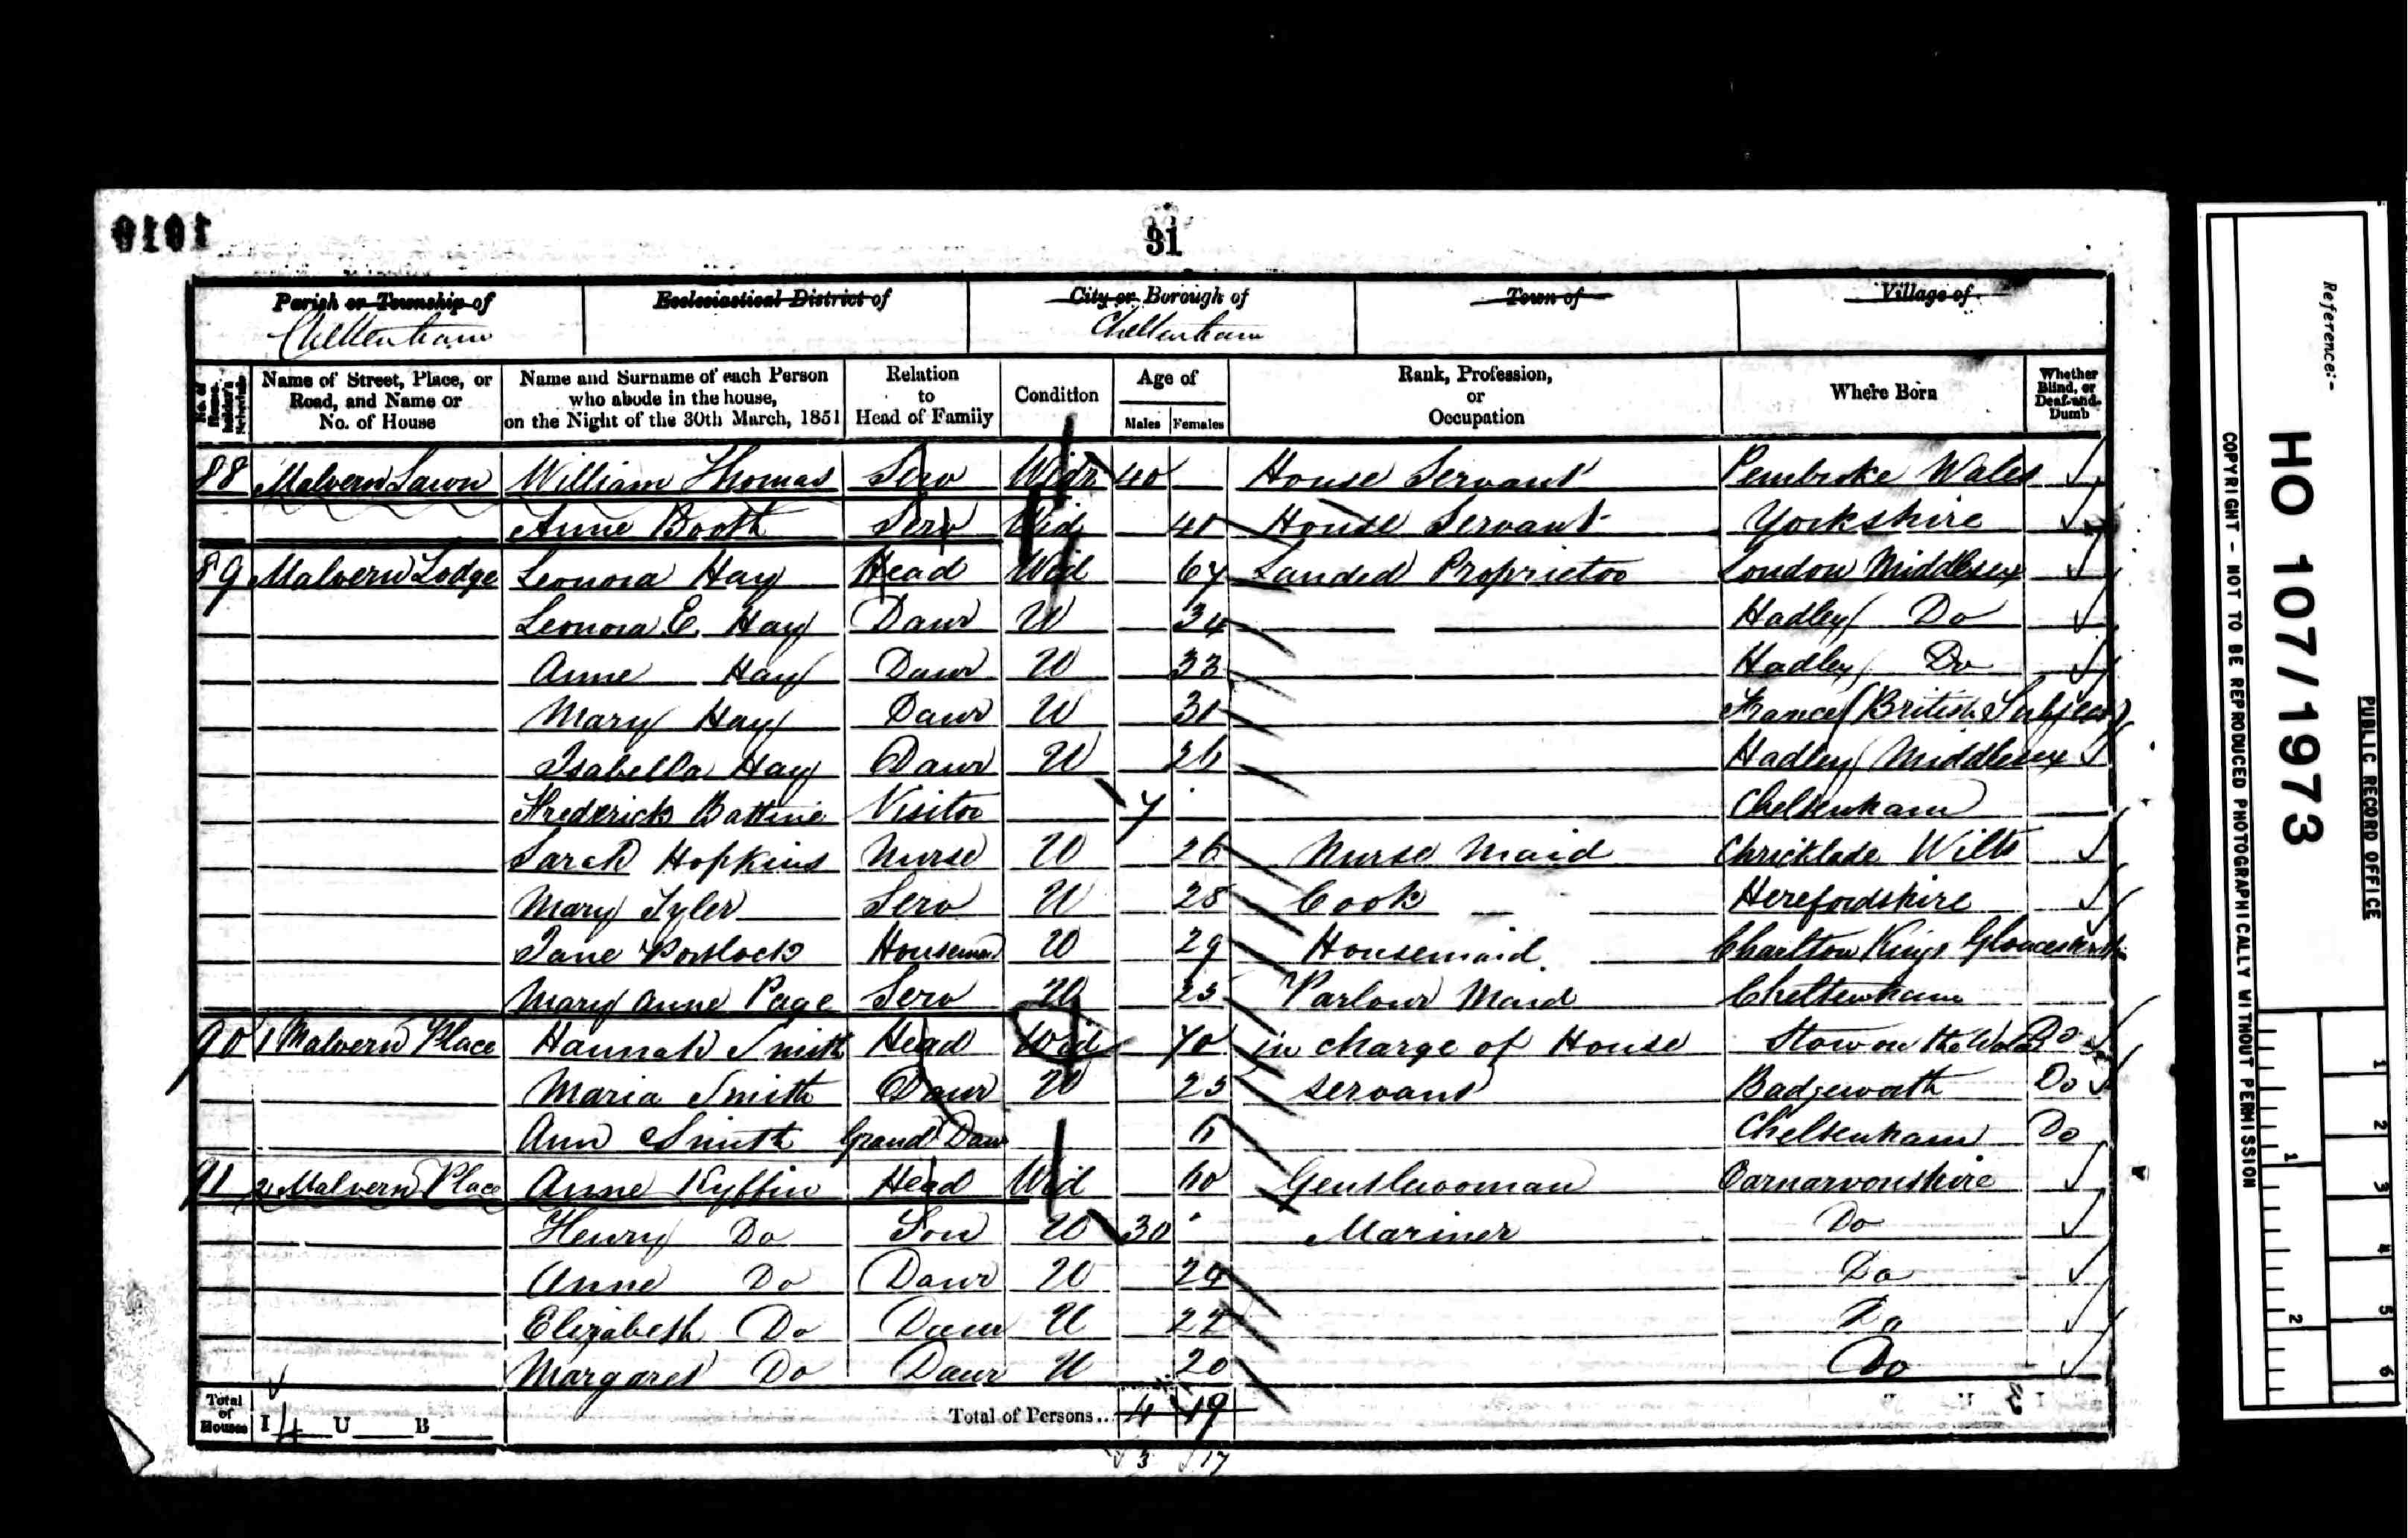 1010
31
Parish or Township of
Cheltenham
Ecclesiastical District of
City or Borough of
Cheltenham
Town of
Village of
No. of House-holder's Schedule
Name of Street, Place, or Road, and Name or No. of House
Name and Surname of each Person who abode in the house, on the Night of the 30th March, 1851
Relation to Head of Family
Condition
Age of
Males Females
Rank, Profession, or Occupation
Where Born
Whether Blind, or Deaf-and-Dumb
88 Malvern Lawn William Thomas Serv Widr 40 House Servant Pembroke Wales
Anne Booth Serv Wid 41 House Servant Yorkshire
89 Malvern Lodge Leonora Hay Head Wid 67 Landed Proprietor London Middlesex
Leonora E. Hay Daur U 34 Hadley Do
Anne Hay Daur U 33 Hadley Do
Mary Hay Daur U 31 France (British Subject)
Isabella Hay Daur U 26 Hadley Middlesex
Frederick Battine Visitor 7 Cheltenham
Sarah Hopkins Nurse U 26 Nurse Maid Chricklade Wilts
Mary Tyler Serv U 28 Cook Herefordshire
Jane Portlock Housemd U 29 Housemaid Charlton Kings
Mary Anne Page Serv U 23 Parlour Maid Cheltenham
90 1 Malvern Place Hannah Smith Head Wid 70 in charge of House Stow on the Wold Do
Maria Smith Daur U 23 Servant Badgeworth Do
Ann Smith Grand Daur Cheltenham Do
91 2 Malvern Place Anne Kyffin Head Wid 60 Gentlewoman Carnarvonshire
Henry Do Son U 30 Mariner Do
Anne Do Daur U 24 Do
Elizabeth Do Daur U 22 Do
Margaret Do Daur U 20 Do
Total of Houses I 4 U B Total of Persons.. 4 19
3 17
Reference:-
HO 107/1973
PUBLIC RECORD OFFICE
COPYRIGHT - NOT TO BE REPRODUCED PHOTOGRAPHICALLY WITHOUT PERMISSION
1 2 3 4 5 6
1 2